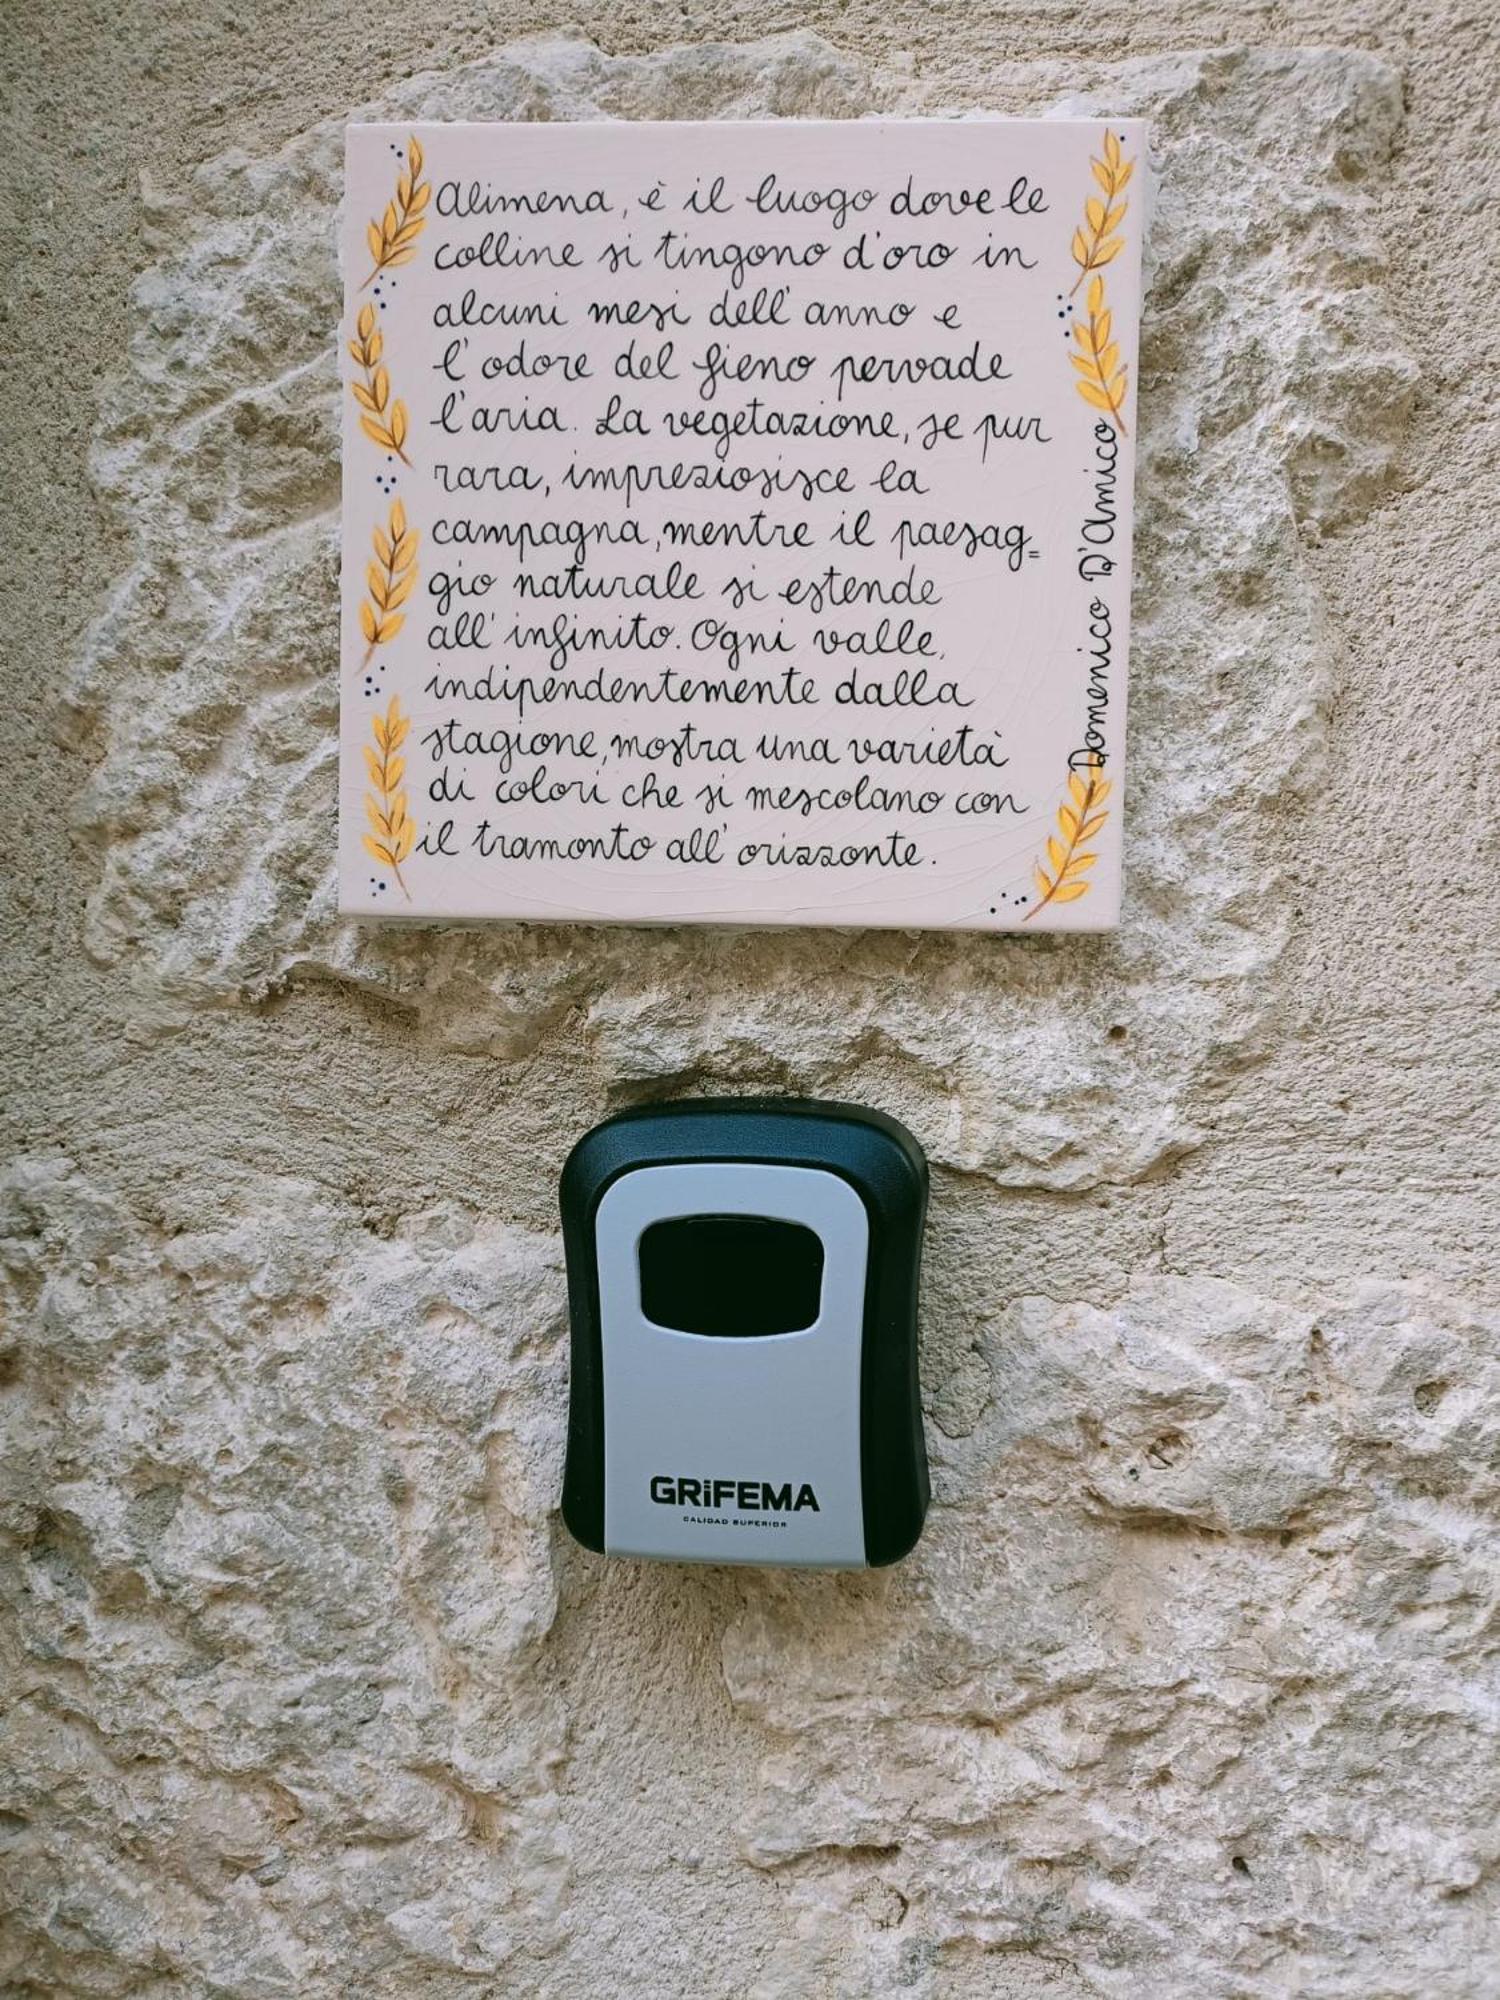 Alimena, è il luogo dove le
colline si tingono d'oro in
alcuni mesi dell'anno e
l'odore del fieno pervade
l'aria. La vegetazione, se pur
rara, impreziosisce la
campagna, mentre il paesag=
gio naturale si estende
all'infinito. Ogni valle,
indipendentemente dalla
stagione, mostra una varietà
di colori che si mescolano con
il tramonto all'orizzonte.
Domenico D'Amico
GRiFEMA
CALIDAD SUPERIOR